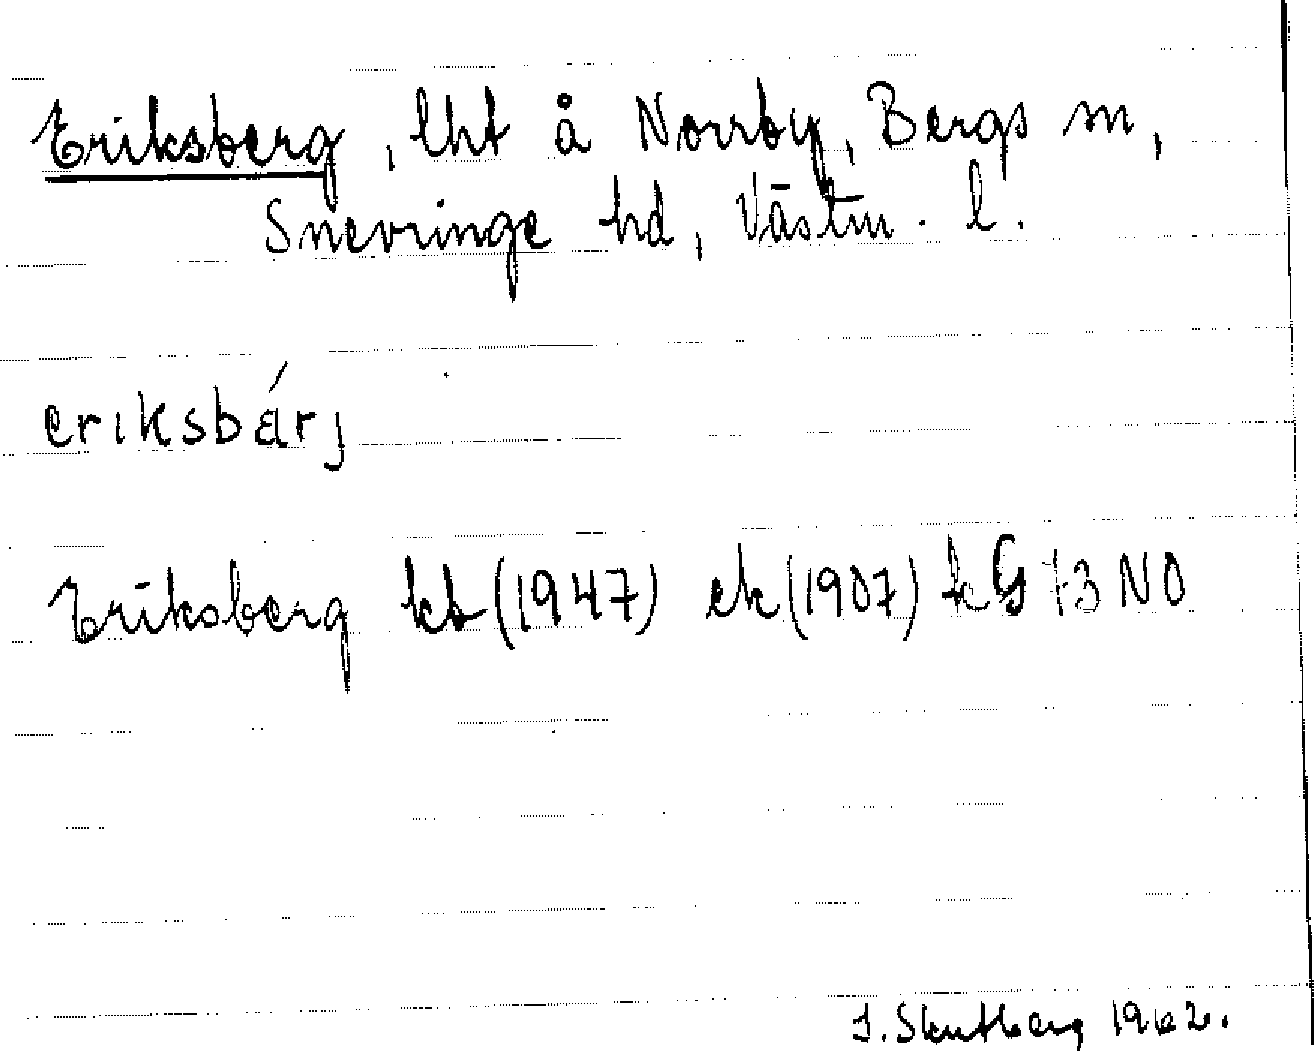 Eriksberg, lht å Norrby, Bergs sn,
Snevringe hd, Västm. l.
eriksbárj
Eriksberg kb (1947) ek (1907) k G 73 NO
1962.